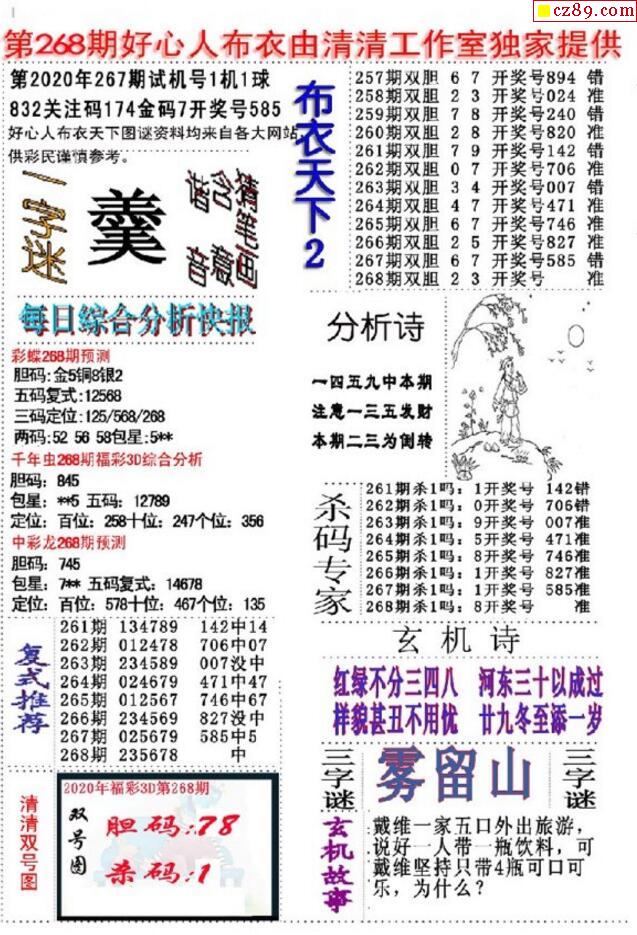 cz89.com
第268期好心人布衣由清清工作室独家提供
第2020年267期试机号1机1球
832关注码174金码7开奖号585
好心人布衣天下图谜资料均来自各大网站,
供彩民谨慎参考。
一字迷
羹
猜笔画
含意
谐音
布衣天下2
257期双胆 6 7 开奖号894 错
258期双胆 2 3 开奖号024 准
259期双胆 7 8 开奖号240 错
260期双胆 2 8 开奖号820 准
261期双胆 7 9 开奖号142 错
262期双胆 0 7 开奖号706 准
263期双胆 3 4 开奖号007 错
264期双胆 4 7 开奖号471 准
265期双胆 6 7 开奖号746 准
266期双胆 2 5 开奖号827 准
267期双胆 6 7 开奖号585 错
268期双胆 2 3 开奖号 准
每日综合分析快报
彩蝶268期预测
胆码:金5铜8银2
五码复式:12568
三码定位:125/568/268
两码:52 56 58包星:5**
千年虫268期福彩3D综合分析
胆码: 845
包星: **5 五码: 12789
定位: 百位: 258十位: 247个位: 356
中彩龙268期预测
胆码: 745
包星: 7** 五码复式: 14678
定位: 百位: 578十位: 467个位: 135
分析诗
一四五九中本期
注意一三五发财
本期二三为倒转
杀码专家
261期杀1吗: 1开奖号 142错
262期杀1吗: 0开奖号 706错
263期杀1吗: 9开奖号 007准
264期杀1吗: 5开奖号 471准
265期杀1吗: 8开奖号 746准
266期杀1吗: 1开奖号 827准
267期杀1吗: 1开奖号 585准
268期杀1吗: 8开奖号 准
复式推荐
261期 134789 142中14
262期 012478 706中07
263期 234589 007没中
264期 024679 471中47
265期 012567 746中67
266期 234569 827没中
267期 025679 585中5
268期 235678 中
玄机诗
红绿不分三四八 河东三十以成过
样貌甚丑不用忧 廿九冬至添一岁
三字谜
雾留山
三字谜
清清双号图
2020年福彩3D第268期
双号图
胆码:78
杀码:1
玄机故事
戴维一家五口外出旅游,
说好一人带一瓶饮料, 可
戴维坚持只带4瓶可口可
乐, 为什么?